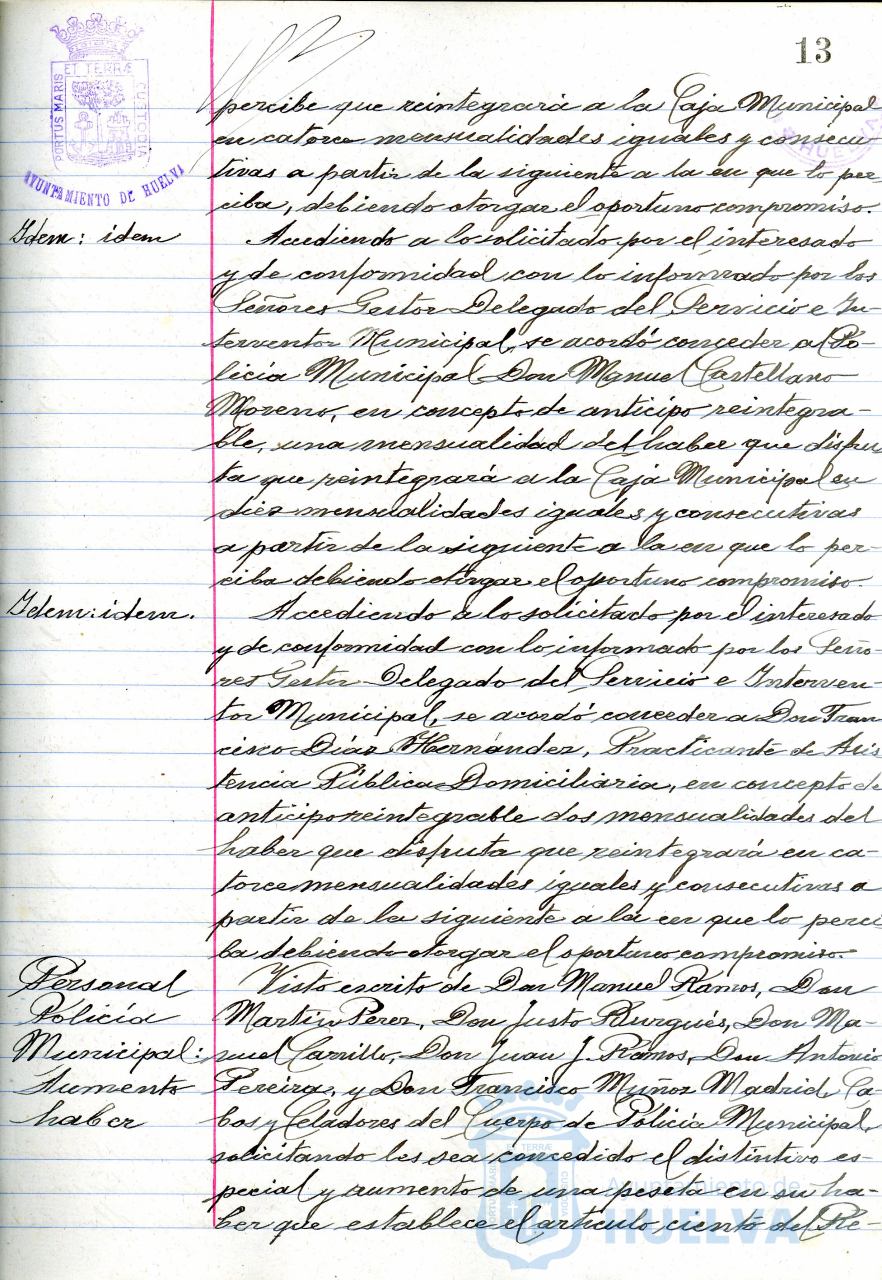 13
PORTUS MARIS
ET TERRÆ
CUSTODIA
AYUNTAMIENTO DE HUELVA
HUELVA
percibe que reintegrará a la Caja Municipal
en catorce mensualidades iguales y consecu-
tivas a partir de la siguiente a la en que lo per-
ciba, debiendo otorgar el oportuno compromiso.
Idem: idem
Accediendo a lo solicitado por el interesado
y de conformidad con lo informado por los
Señores Gestor Delegado del Servicio e In-
terventor Municipal, se acordó conceder al Po-
licía Municipal Don Manuel Castellano
Moreno, en concepto de anticipo reintegra-
ble, una mensualidad del haber que disfru
ta que reintegrará a la Caja Municipal en
diez mensualidades iguales y consecutivas
a partir de la siguiente a la en que lo per-
ciba debiendo otorgar el oportuno compromiso.
Idem: idem.
Accediendo a lo solicitado por el interesado
y de conformidad con lo informado por los Seño-
res Gestor Delegado del Servicio e Interven-
tor Municipal, se acordó conceder a Don Fran
cisco Díaz Hernández, Practicante de Asis
tencia Pública Domiciliaria, en concepto de
anticipo reintegrable dos mensualidades del
haber que disfruta que reintegrará en ca-
torce mensualidades iguales y consecutivas a
partir de la siguiente a la en que lo perci
ba debiendo otorgar el oportuno compromiso.
Personal
Policía
Municipal:
Aumento
haber
Visto escrito de Don Manuel Ramos, Don
Martín Perez, Don Justo Burgués, Don Ma-
nuel Carrillo, Don Juan J. Ramos, Don Antonio
Pereira, y Don Francisco Muñoz Madrid, Ca-
bos y Celadores del Cuerpo de Policía Municipal,
solicitando les sea concedido el distintivo es-
pecial y aumento de una peseta en su ha-
ber que establece el artículo ciento del Re-
PORTUS MARIS
ET TERRÆ
CUSTODIA
Ayuntamiento de
HUELVA